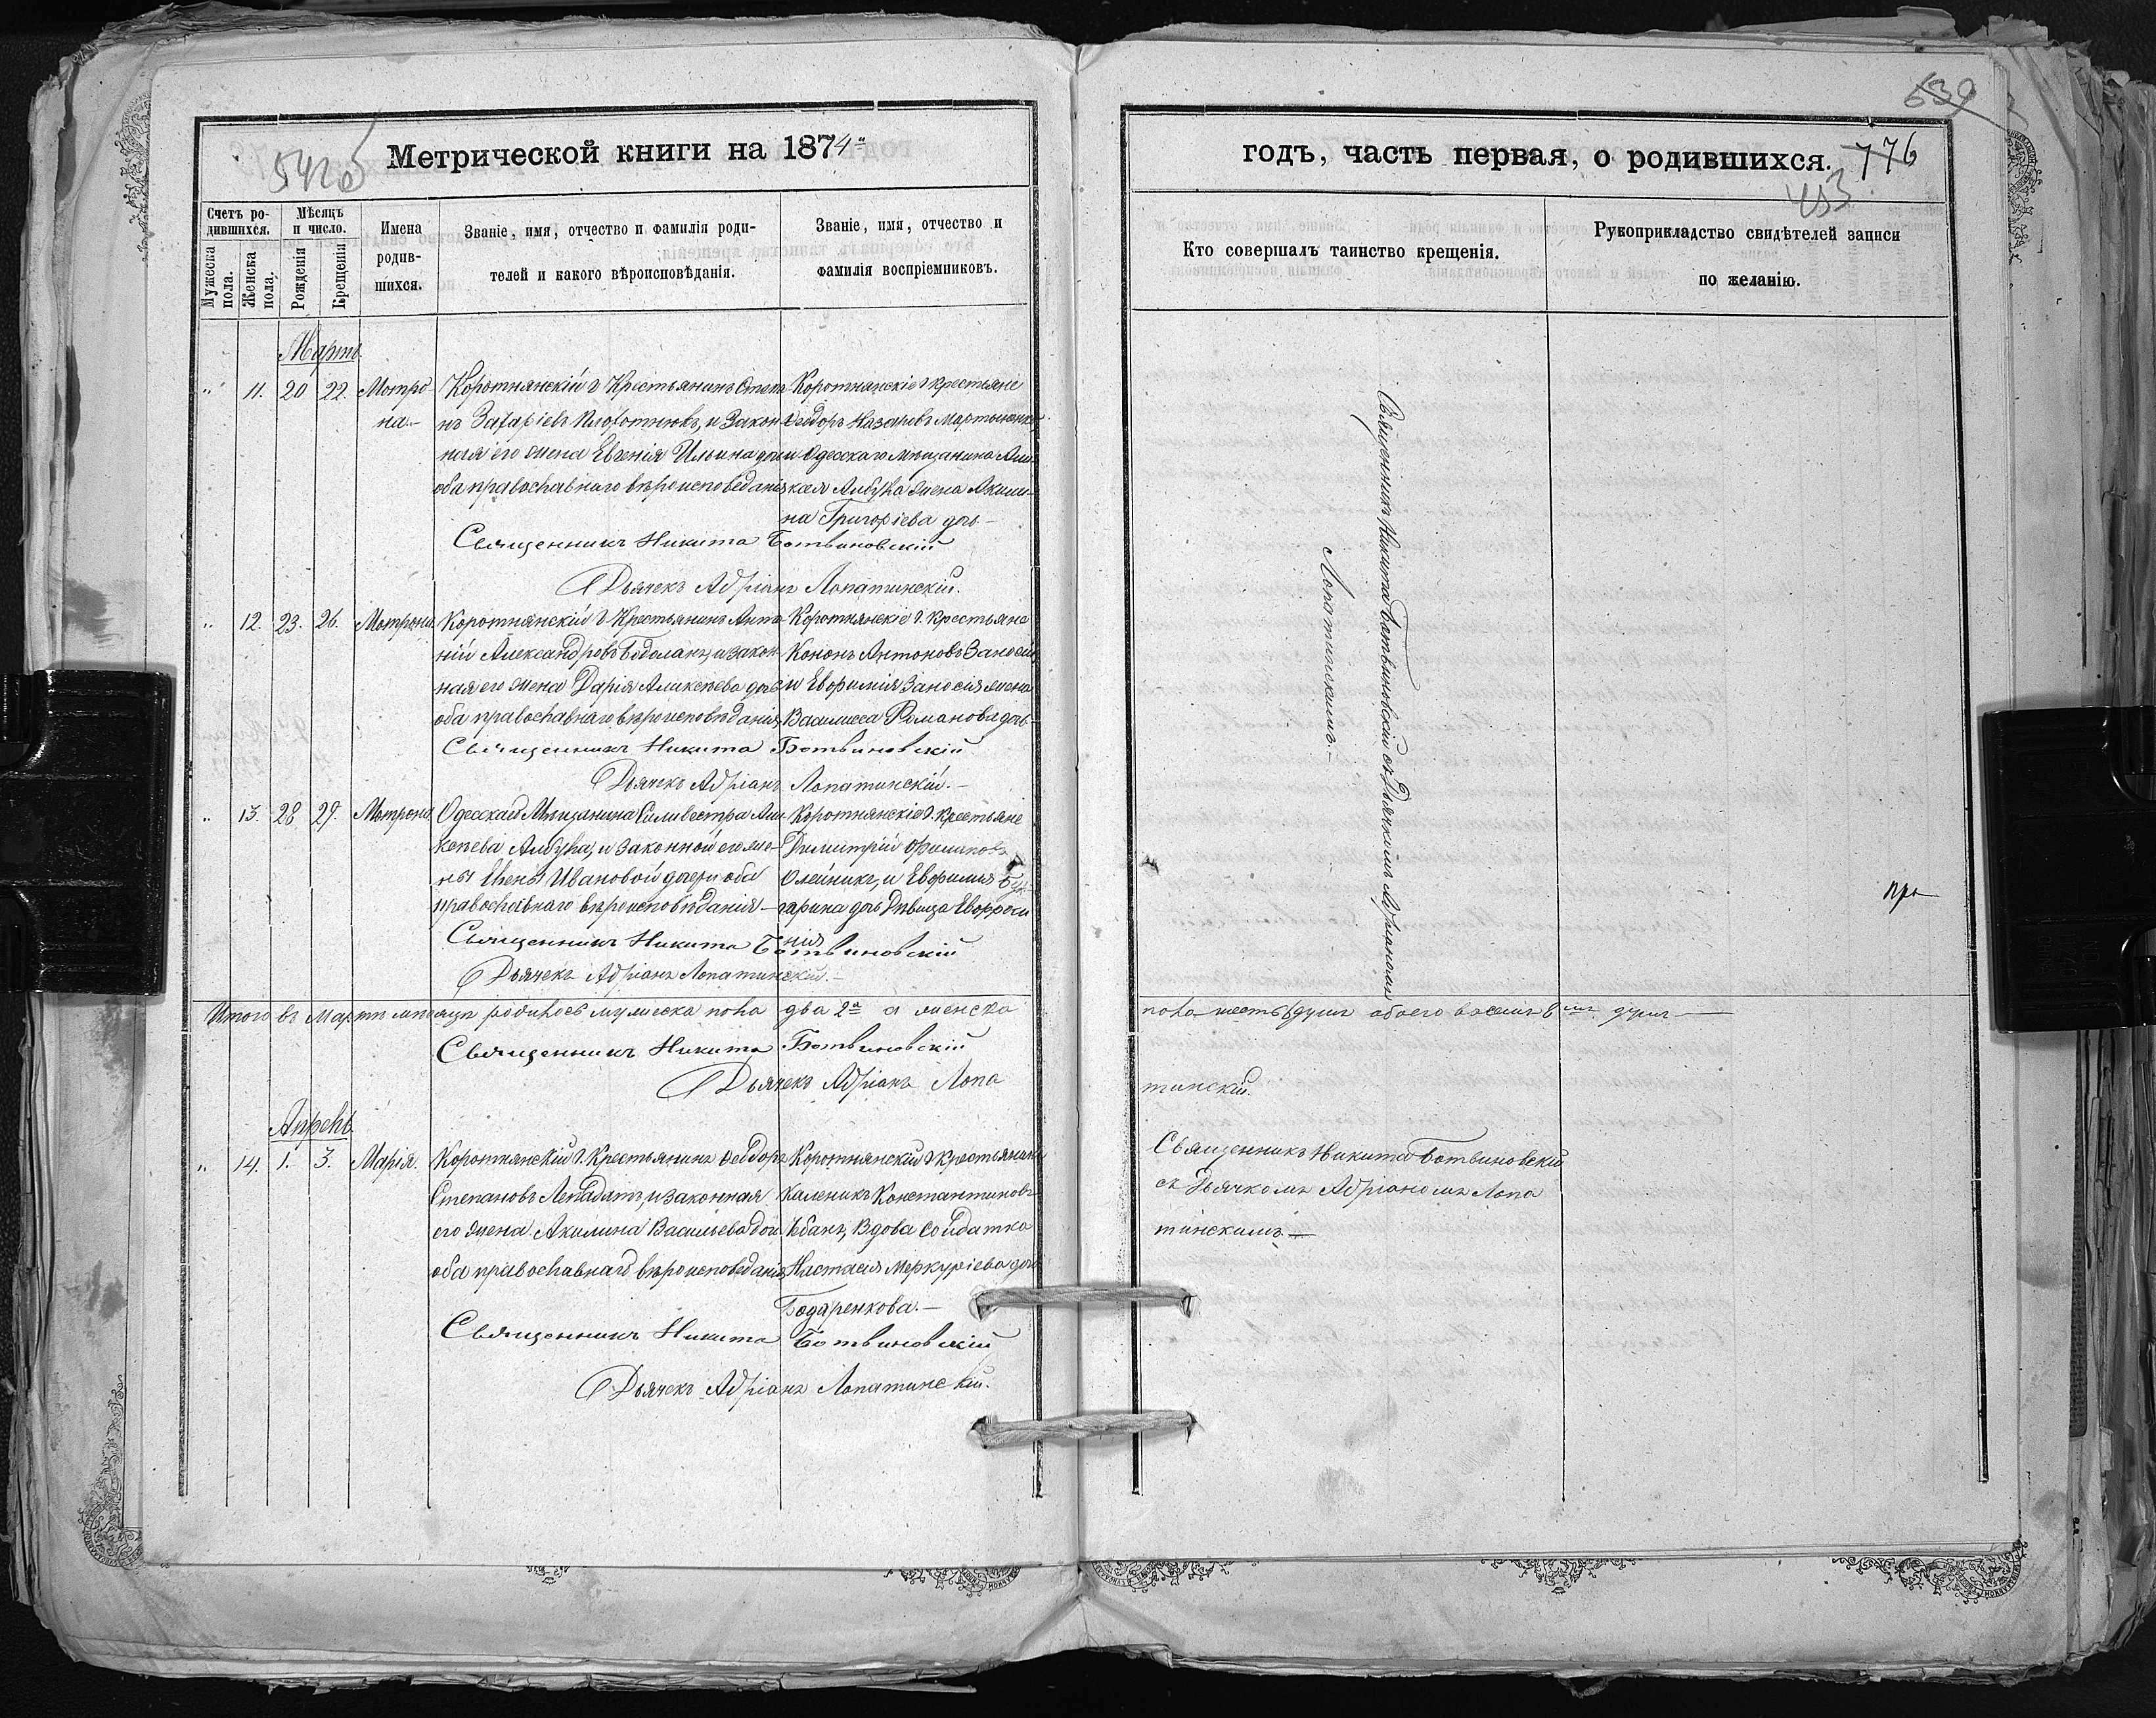 542об
Метрической книги на 1874
Счетъ родившихся.
Мужеска пола.
Женска пола.
Мѣсяцъ и число.
Рожденія
Крещенія
Имена родившихся.
Званіе, имя, отчество и фамилія роди-
телей и какого вѣроисповѣданія.
Званіе, имя, отчество и
фамилія воспріемниковъ.
Мартъ
" 11. 20 22. Мотро-
на.-
Коротнянскій Крестьянинъ Степа-
нъ Захаріевъ и закон-
ная его жена Евгенія Ильина дочь
оба православнаго вѣроисповеданія
Коротнянскіе крестьяне
Ѳеодоръ Назаровъ Мартыненко
и Одесскаго Мещанина Але-
жена Акили-
на Григоріева дочь-
Священникъ Никита Ботвиновскій
Дьячекъ Адріанъ Лопатинскій.
" 12. 23. 26. Мотрона.
Коротнянскій Крестьянинъ Анто-
ній Александровъ и закон-
ная его жена Дарія Аликсѣева дочь
оба православнаго вѣроисповѣданія
Коротнянскіе крестьяне
Кононъ Антоновъ
и Евфимія жена
Василисса Романова дочь-
Священникъ Никита Ботвиновскій
Дьячекъ Адріанъ Лопатинскій.-
" 13. 28 29. Мотрона.
Одесскаго Мещанина Силивестра Али-
ксѣева и законной его же-
ны Елены Ивановой дочери оба
православнаго вѣроисповѣданія-
Коротнянскіе крестьяне
Димитрій Филиповъ
Олейникъ, и Евфимія
дочь Дѣвица Евфроси-
нія
Священникъ Никита Ботвиновскій
Дьячекъ Адріанъ Лопатинскій.-
Итого въ Мартѣ мѣсяцѣ родилось мужеска пола два 2а а женска
Священникъ Никита Ботвиновскій
Дьячекъ Адріанъ Лопа
Апрель
" 14. 1. 3. Марія.
Коротнянскій Крестьянинъ Ѳеодоръ
Степановъ и законная
его жена Акилина Васильева дочь
оба православнаго вѣроисповеданія
Коротнянскій крестьянинъ
Каленикъ Константиновъ
Вдова Солдатка
Настасія Меркуріева дочь
Бодаренкова.-
Священникъ Никита Ботвиновскій
Дьячекъ Адріанъ Лопатинскій.
годъ, часть первая, о родившихся.
776
453
Кто совершалъ таинство крещенія.
Рукоприкладство свидѣтелей записи
по желанію.
Священникъ Никита Ботвиновскій съ Дьячкомъ Адріаномъ
Лопатинскимъ.-
пола шесть 6 душъ обоего восемь 8 душъ
тинскій.
Священникъ Никита Ботвиновскій
съ Дьячкомъ Адріаномъ Лопа
тинскимъ.